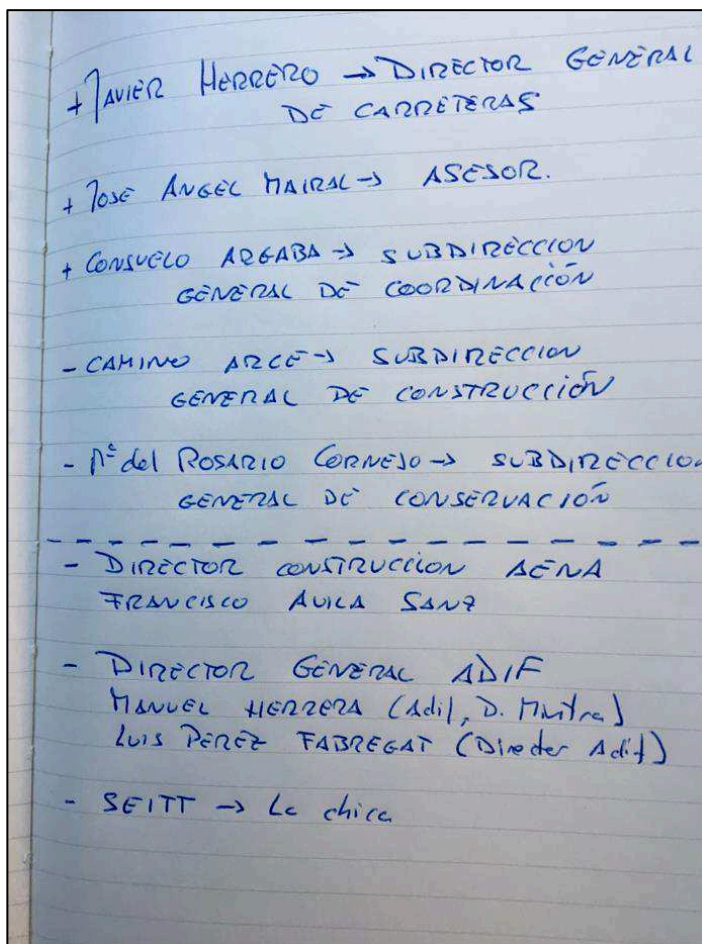 + JAVIER HERRERO → DIRECTOR GENERAL
DE CARRETERAS
+ JOSE ANGEL MAIRAL → ASESOR.
+ CONSUELO ARGABA → SUBDIRECCION
GENERAL DE COORDINACIÓN
- CAMINO ARCE → SUBDIRECCION
GENERAL DE CONSTRUCCIÓN
- Mª del ROSARIO CORNEJO → SUBDIRECCION
GENERAL DE CONSERVACIÓN
- DIRECTOR CONSTRUCCION AENA
FRANCISCO AVILA SANZ
- DIRECTOR GENERAL ADIF
MANUEL HERRERA (Adif, D. )
LUIS PEREZ FABREGAT (Director Adif)
- SEITT → La chica